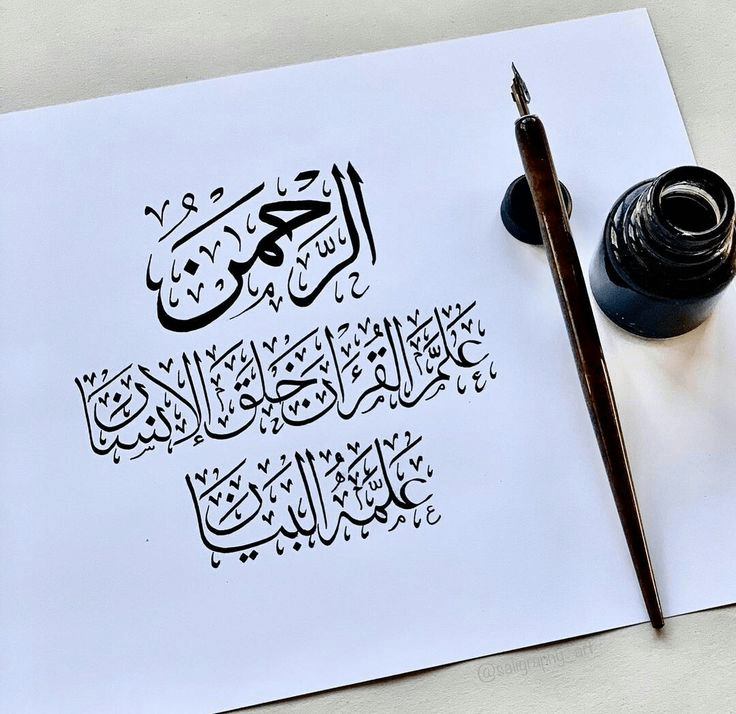 الرَّحْمَنُ
عَلَّمَ القُرْءَانَ خَلَقَ الإِنْسَانَ
عَلَّمَهُ البَيَانَ
@saligraphy_art